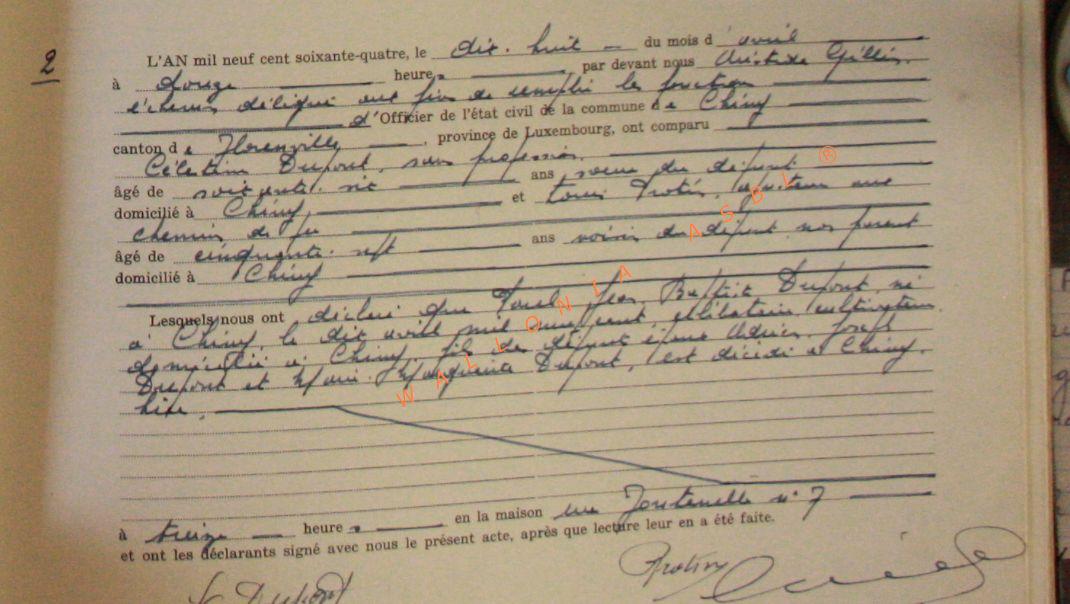 2
L'AN mil neuf cent soixante-quatre, le dix-huit du mois d'avril
à douze heures, par devant nous Aristide Gillis,
échevin délégué aux fins de remplir les fonctions
d'Officier de l'état civil de la commune de Chiny
canton de Florenville, province de Luxembourg, ont comparu
Célestine Dupont, sans profession,
âgé de soixante-six ans soeur du défunt
domicilié à Chiny, et Louis Protin, ajusteur aux
chemins de fer
âgé de cinquante-sept ans voisin du défunt non parent
domicilié à Chiny
Lesquels nous ont déclaré que Jean Baptiste Dupont, né
à Chiny, le dix avril mil neuf cent célibataire, cultivateur
domicilié à Chiny, fils des défunts époux Joseph
Dupont et Marie Dupont, est décédé à Chiny,
hier,
à treize heures en la maison rue Fontenelle n° 7
et ont les déclarants signé avec nous le présent acte, après que lecture leur en a été faite.
Protin
C Dupont
WALLONIA ASBL ®